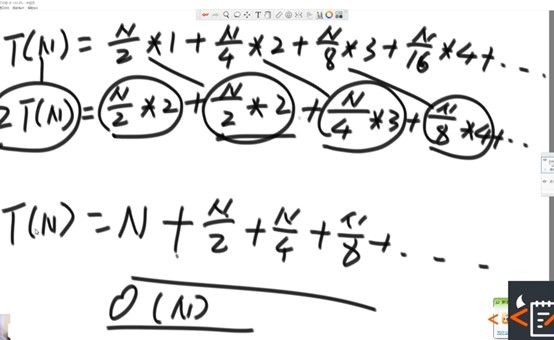 T(N) = N/2 * 1 + N/4 * 2 + N/8 * 3 + N/16 * 4 + ...
2T(N) = N/2 * 2 + N/2 * 2 + N/4 * 3 + N/8 * 4 + ..
T(N) = N + N/2 + N/4 + N/8 + ....
O(N)